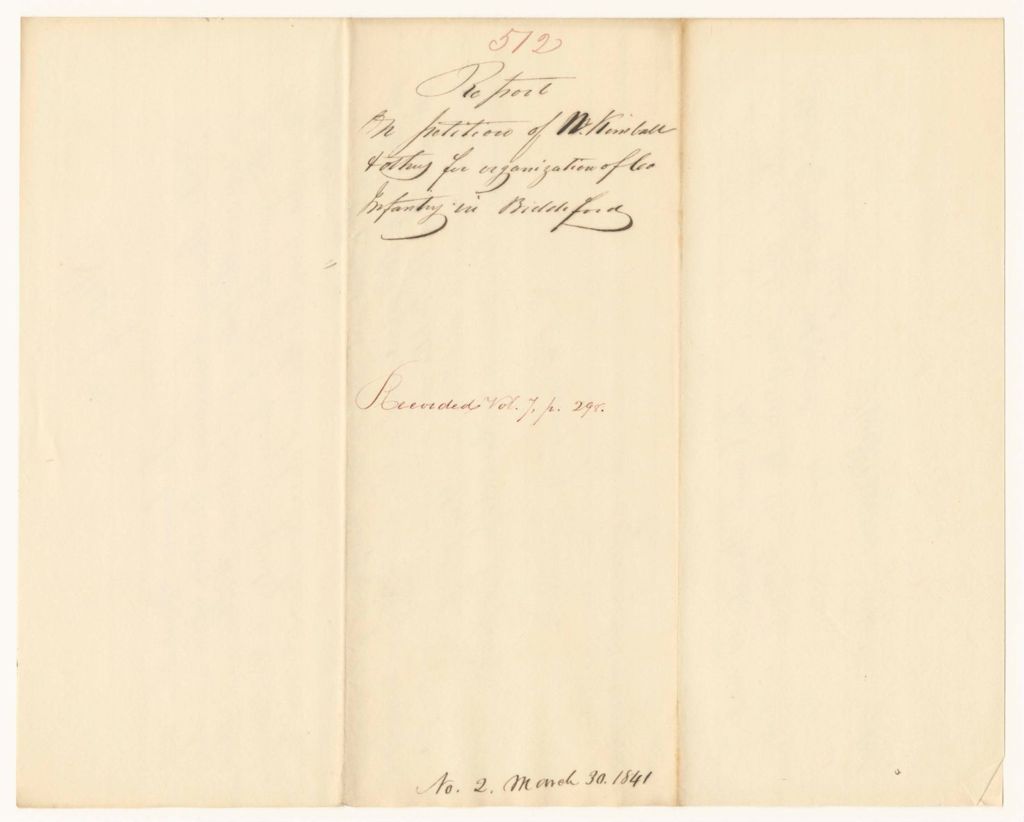 512
Report
On petition of W. Kimball
& others for organization of Co
Infantry in Biddeford
Recorded Vol. 7, p. 298.
No. 2. March 30. 1841